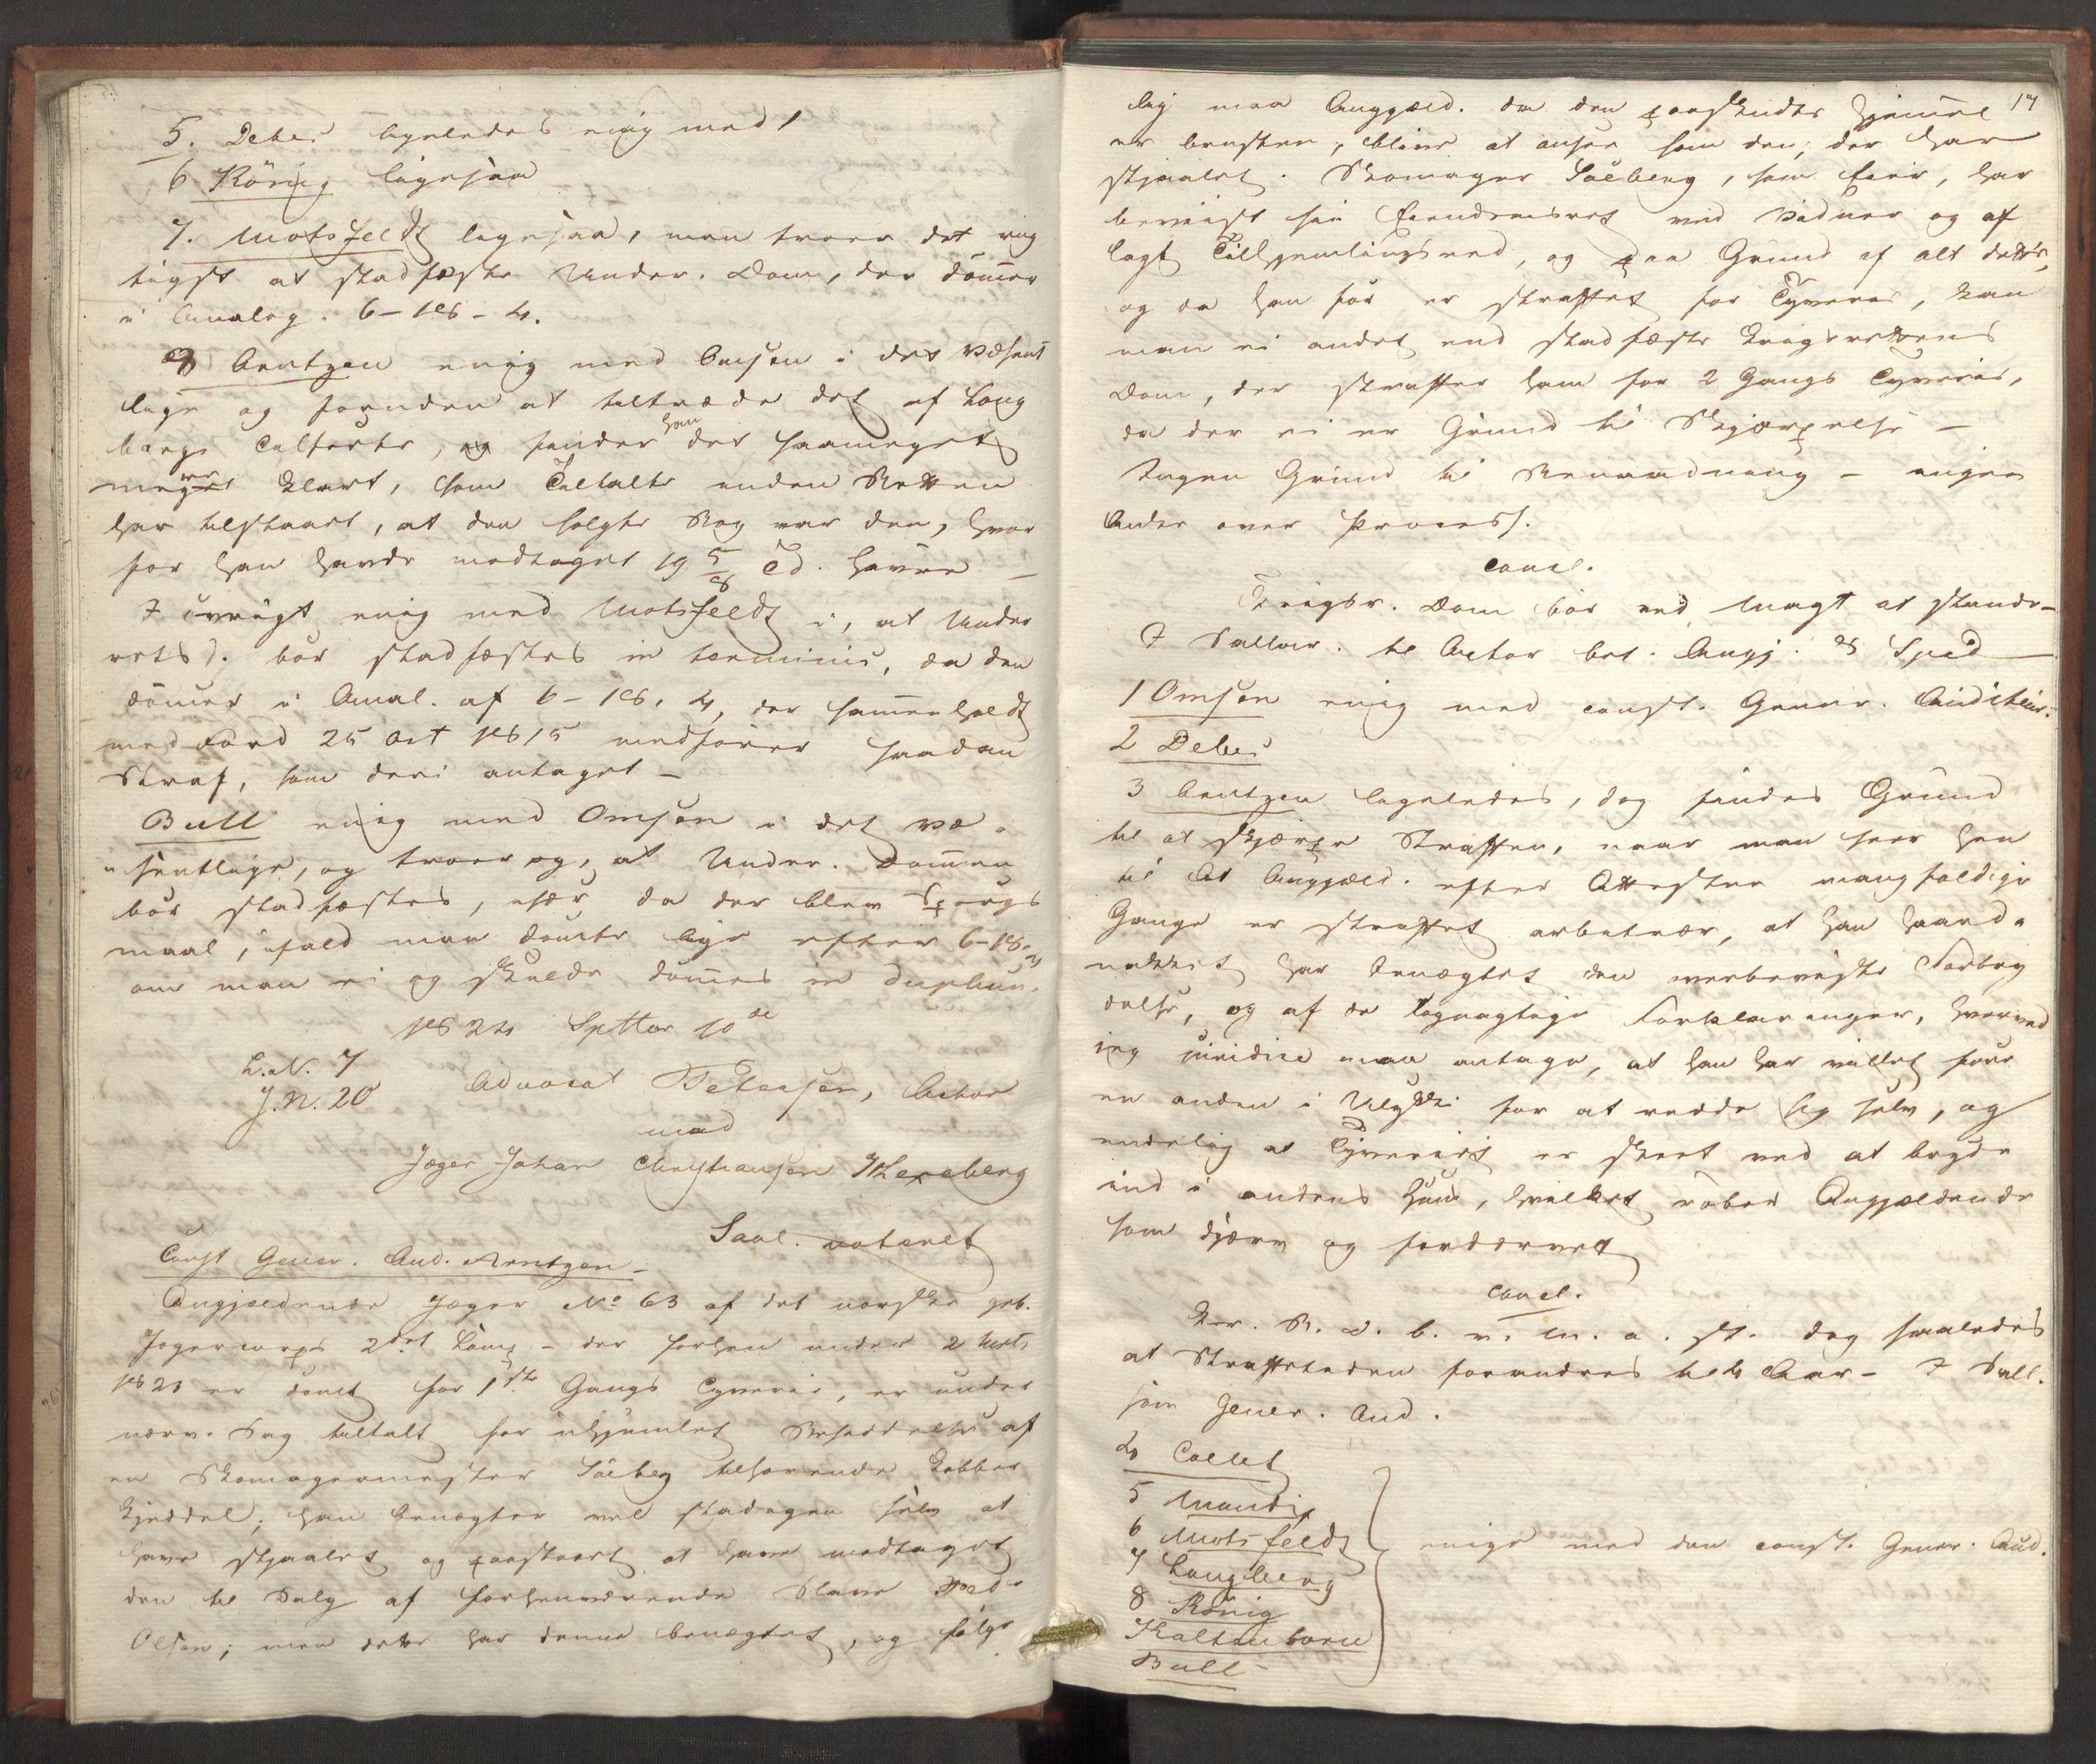 5. Debes ligeledes enig med 1
6 König ligesaa
7. Motzfeldt ligesaa, men troer det rig
tigst at stadfæste Under. Dom, der dömmer
i Analog. 6-18-4.
8 Bentzen enig med Omsen i det Væsent
lige og fornden at tiltræde det af Lang
bergs Tilførte, og finder han det saameget
meget klart, som Tiltalte under Retten
har tilstaaet, at den solgte Rug var den, hvor
for han havde modtaget 19 5/8 Td. Havre —
I øvrigt enig med Motzfeldt i, at Under
retsd. bör stadfæstes in terminis, da den
dömmer i Anal. af 6-18. 4, der sammenholdt
med Ford 25 Oct 1815 medförer saadan
Straf, som deri antaget —
Bull enig med Omsen i det væ-
sentlige, og troer og, at Under. Dommen
bör stadfæstes, især da der blev Spörgs
maal, ifald man dömte lige efter 6-18-4
om man ei og skulde dömmes in duplum.
1824 Septbr 10de
L.N. 7
J.N. 20
Advocat Petersen, Actor
mod
Jæger Johan Christiansen Skexeberg
Saal. voteret
Const Gener. Aud. Bentzen —
Angjældende Jæger No 63 af det norske geb.
Jægercorps 2det Comp – der forhen under 2
1823 er dömt for 1ste Gangs Tyverie, er under
nærv. Sag tiltalt for uhjemlet Besiddelse af
en Skomagermester Soeberg tilhørende Kobber
Kjeddel; han benægter vel stadigen selv at
have stjaalet og paastaaet at have modtaget
den til Salg af forhenværende Slave Ped.
Olsen; men dette har denne benægtet, og fölge
17
lig maa Angjæld. da den paaskudte Hjemmel
er brusten, blive at ansee som den, der har
stjaalet. Skomager Soeberg, som Eier, har
beviist sin Eiendomsret ved Vidner og af
lagt Tilhjemlingseed, og paa Grund af alt dette,
og da han för er straffet for Tyverie, kan
man ei andet end stadfæste Krigsrettens
Dom, der straffer ham for 2 Gangs Tyverie,
da der ei er Grund til Skjærpelse —
Ingen Grund til Benaadning – ingen
Anke over Process.
Concl.
Krigsr. Dom bör ved Magt at stande —
I Sallair. til Actor bet. Angj. 3 Spd —
1 Omsen enig med const. Gener. Auditeur.
2 Debes
3 Bentzen ligeledes, dog findes Grund
til at skjærpe Straffen, naar man seer hen
til at Angjæld. efter Attester mangfoldige
Gange er straffet arbitrær, at han haard-
nakket har benægtet den overbeviste Forbry
delse, og af de lognagtige Forklaringer, hvorved
jeg juridice maa antage, at han har villet före
en anden i Ulykke for at redde sig selv, og
endelig at Tyveriet er skeet ved at bryde
ind i andens Huus, hvilket röber Angjældende
som djærv og fordærvet
Concl.
Kr. R. D. b. v. M. a. st. dog saaledes
at Straffetiden forandres til 4 Aar – I Sall.
som Gener. Aud.
4 Collet
5 Munch
6 Motzfeldt
7 Langberg
8 König
Kaltenborn
Bull
enige med den const. Gener. Aud.